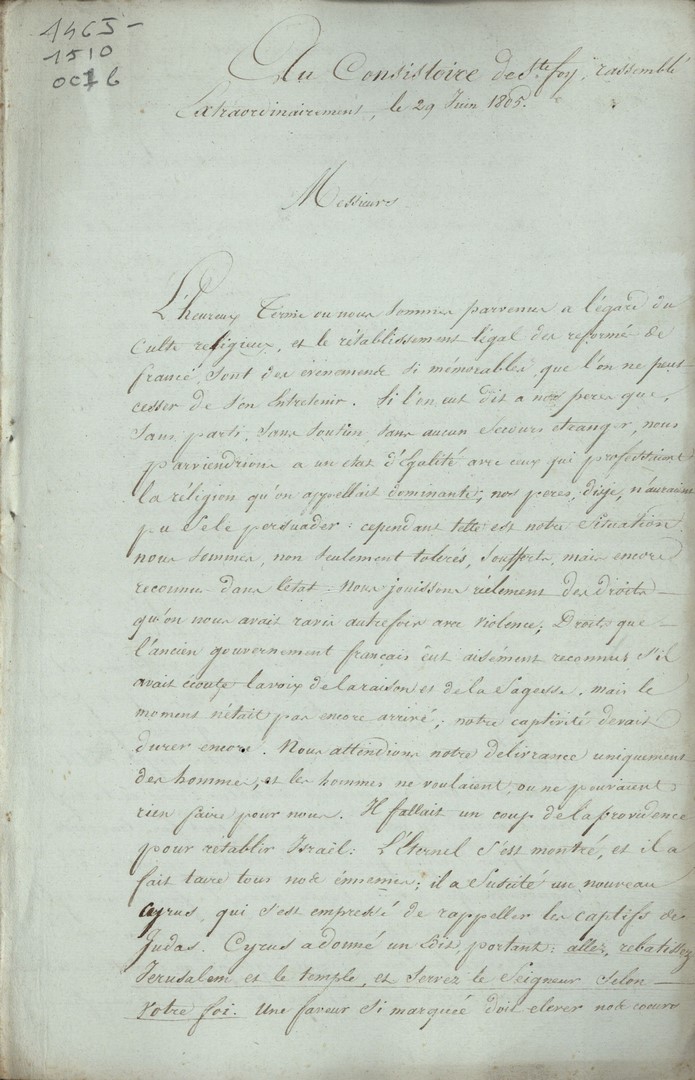 1465-
1510
Au Consistoire de Ste foy, rassemblé
Extraordinairement, le 29 Juin 1805.
Messieurs
L'heureux terme ou nous sommes parvenus a l'égard du
culte religieux, et le rétablissement légal des reformés de
france, sont des évènements si mémorables, que l'on ne peut
cesser de s'en entretenir. Si l'on eut dit a nos peres que,
sans parti, sans soutien, sans aucun secours etranger, nous
parviendrions a un état d'Egalité avec ceux qui professaient
la réligion qu'on appellait dominante, nos peres, disje, n'auraient
pu se le persuader: cependant telle est notre situation
nous sommes, non seulement tolerés, soufferts, mais encore
reconnus dans l'etat. Nous jouissons réelement des droits
qu'on nous avait ravis autrefois avec violence; Droits que
l'ancien gouvernement francais eut aisément reconnus s'il
avait écouté la voix de la raison et de la Sagesse, mais le
moment n'était pas encore arrivé; notre captivité devait
durer encore. Nous attendions notre délivrance uniquement
des hommes, et les hommes ne voulaient, ou ne pouvaient
rien faire pour nous. Il fallait un coup de la providence
pour rétablir Israël: L'Eternel s'est montré, et il a
fait taire tous nos énnemis; il a suscité un nouveau
Cyrus, qui s'est empressé de rappeller les captifs de
Judas. Cyrus a donné un Edit, portant: allez, rebatissez
Jerusalem et le temple, et servez le Seigneur selon
votre foi. Une faveur si marquée doit elever nos coeurs